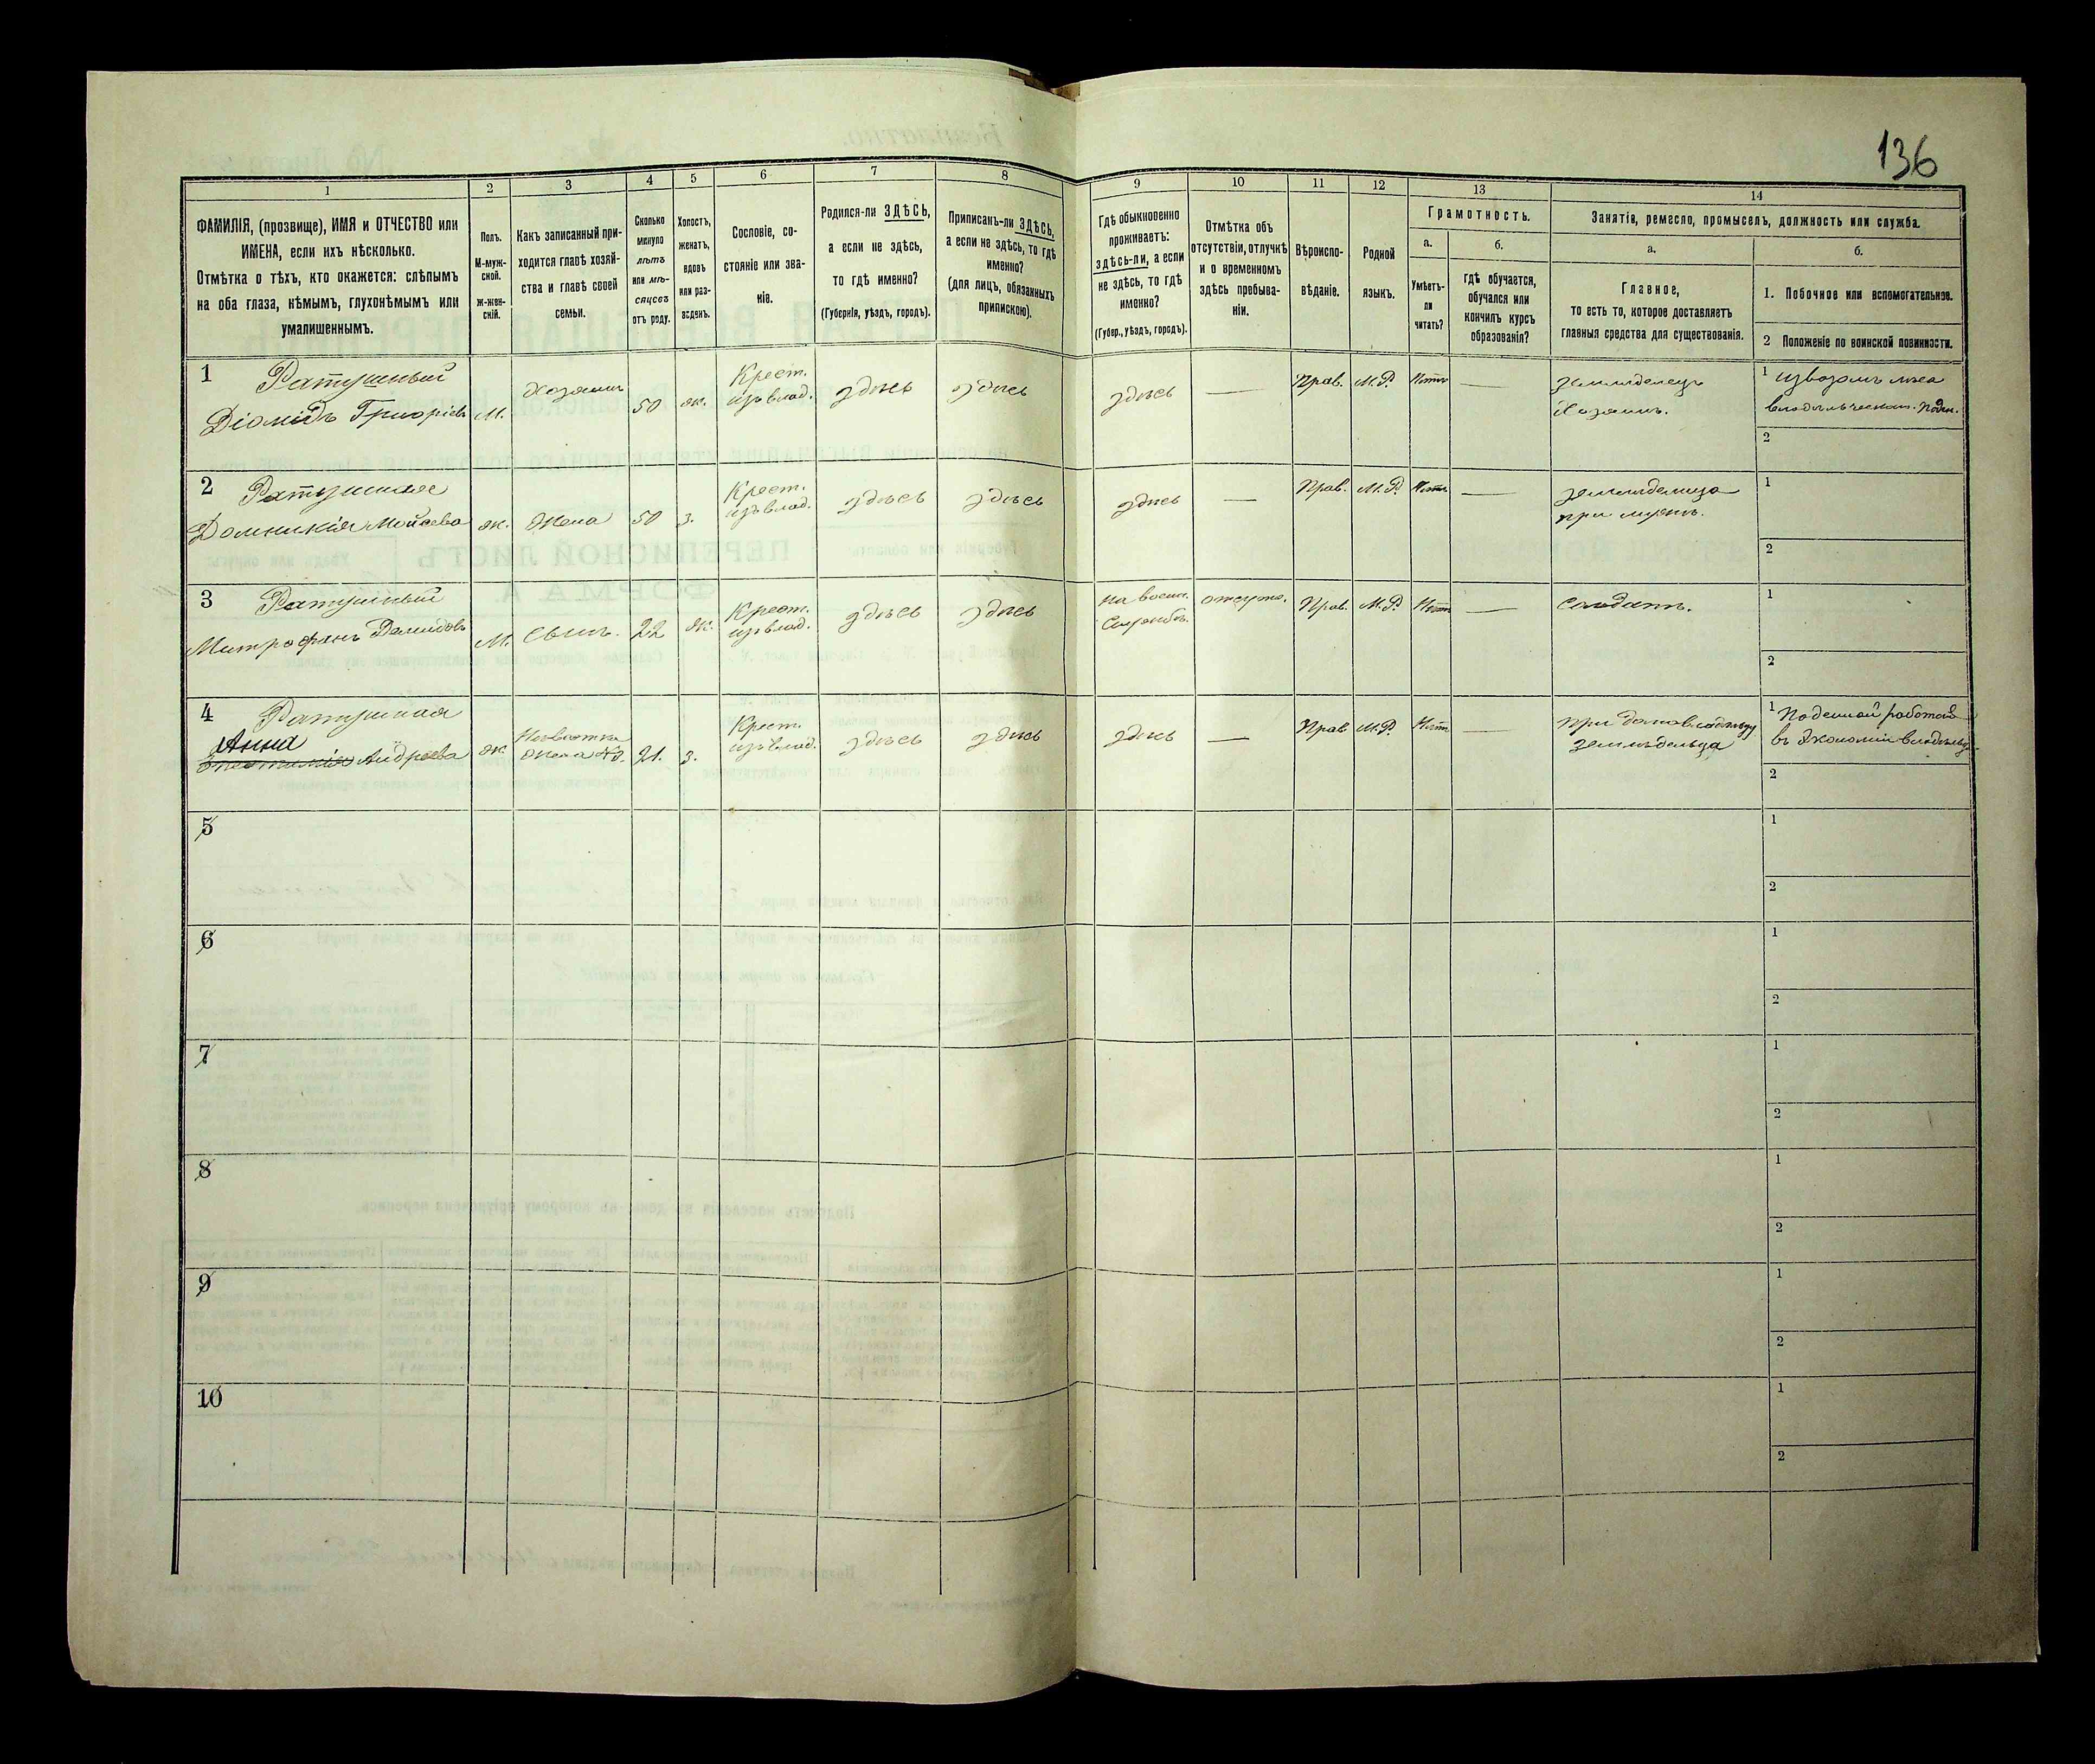 136
1
2
3
4
5
6
7
8
9
10
11
12
13
14
ФАМИЛІЯ, (прозвище), ИМЯ и ОТЧЕСТВО или
ИМЕНА, если ихъ нѣсколько.
Отмѣтка о тѣхъ, кто окажется: слѣпымъ
на оба глаза, нѣмымъ, глухонѣмымъ или
умалишеннымъ.
Полъ.
М-муж-
ской.
ж-жен-
скій.
Какъ записанный при-
ходится главѣ хозяй-
ства и главѣ своей
семьи.
Сколько
минуло
лѣтъ
или мѣ-
сяцевъ
отъ роду.
Холостъ,
женатъ,
вдовъ
или раз-
веденъ.
Сословіе, со-
стояніе или зва-
ніе.
Родился-ли ЗДѢСЬ,
а если не здѣсь,
то гдѣ именно?
(Губернія, уѣздъ, городъ).
Приписанъ-ли ЗДѢСЬ,
а если не здѣсь, то гдѣ
именно?
(для лицъ, обязанныхъ
припискою).
Гдѣ обыкновенно
проживаетъ:
здѣсь-ли, а если
не здѣсь, то гдѣ
именно?
(Губер., уѣздъ, городъ).
Отмѣтка объ
отсутствіи, отлучкѣ
и о временномъ
здѣсь пребыва-
ніи.
Вѣроиспо-
вѣданіе.
Родной
языкъ.
Грамотность.
а.
Умѣетъ-
ли
читать?
б.
Гдѣ обучается,
обучался или
кончилъ курсъ
образованія?
Занятія, ремесло, промыселъ, должность или служба.
а.
Главное,
то есть то, которое доставляетъ
главныя средства для существованія.
б.
1. Побочное или вспомогательное.
2 Положеніе по воинской повинности.
1 Ратушный
Діомидъ Григоріевъ
М.
Хозяинъ
50
ж.
Крест.
изъ влад.
здѣсь
здѣсь
здѣсь
—
Прав.
М.Р.
Нѣтъ
—
земледелецъ
Хозяинъ.
1 извозомъ лѣса
2
2 Ратушная
Домникія Мойсеева
ж.
Жена
50
з.
Крест.
изъ влад.
здѣсь
здѣсь
здѣсь
—
Прав.
М.Р.
Нѣтъ
—
при мужѣ.
1
2
3 Ратушный
Митрофанъ Демидовъ
М.
Сынъ.
22
ж.
Крест.
изъ влад.
здѣсь
здѣсь
на воен.
Службѣ.
Прав.
М.Р.
Нѣтъ
—
солдатъ.
1
2
4 Ратушная
Анна
Андреева
ж
Невѣстка
жена №3.
21.
з.
Крест.
изъ влад.
здѣсь
здѣсь
здѣсь
—
Прав
М.Р.
Нѣтъ
—
при домовладѣльцу
земледельца
1 Поденной работой
въ Экономіи владѣльц.
2
5
1
2
6
1
2
7
1
2
8
1
2
9
1
2
10
1
2